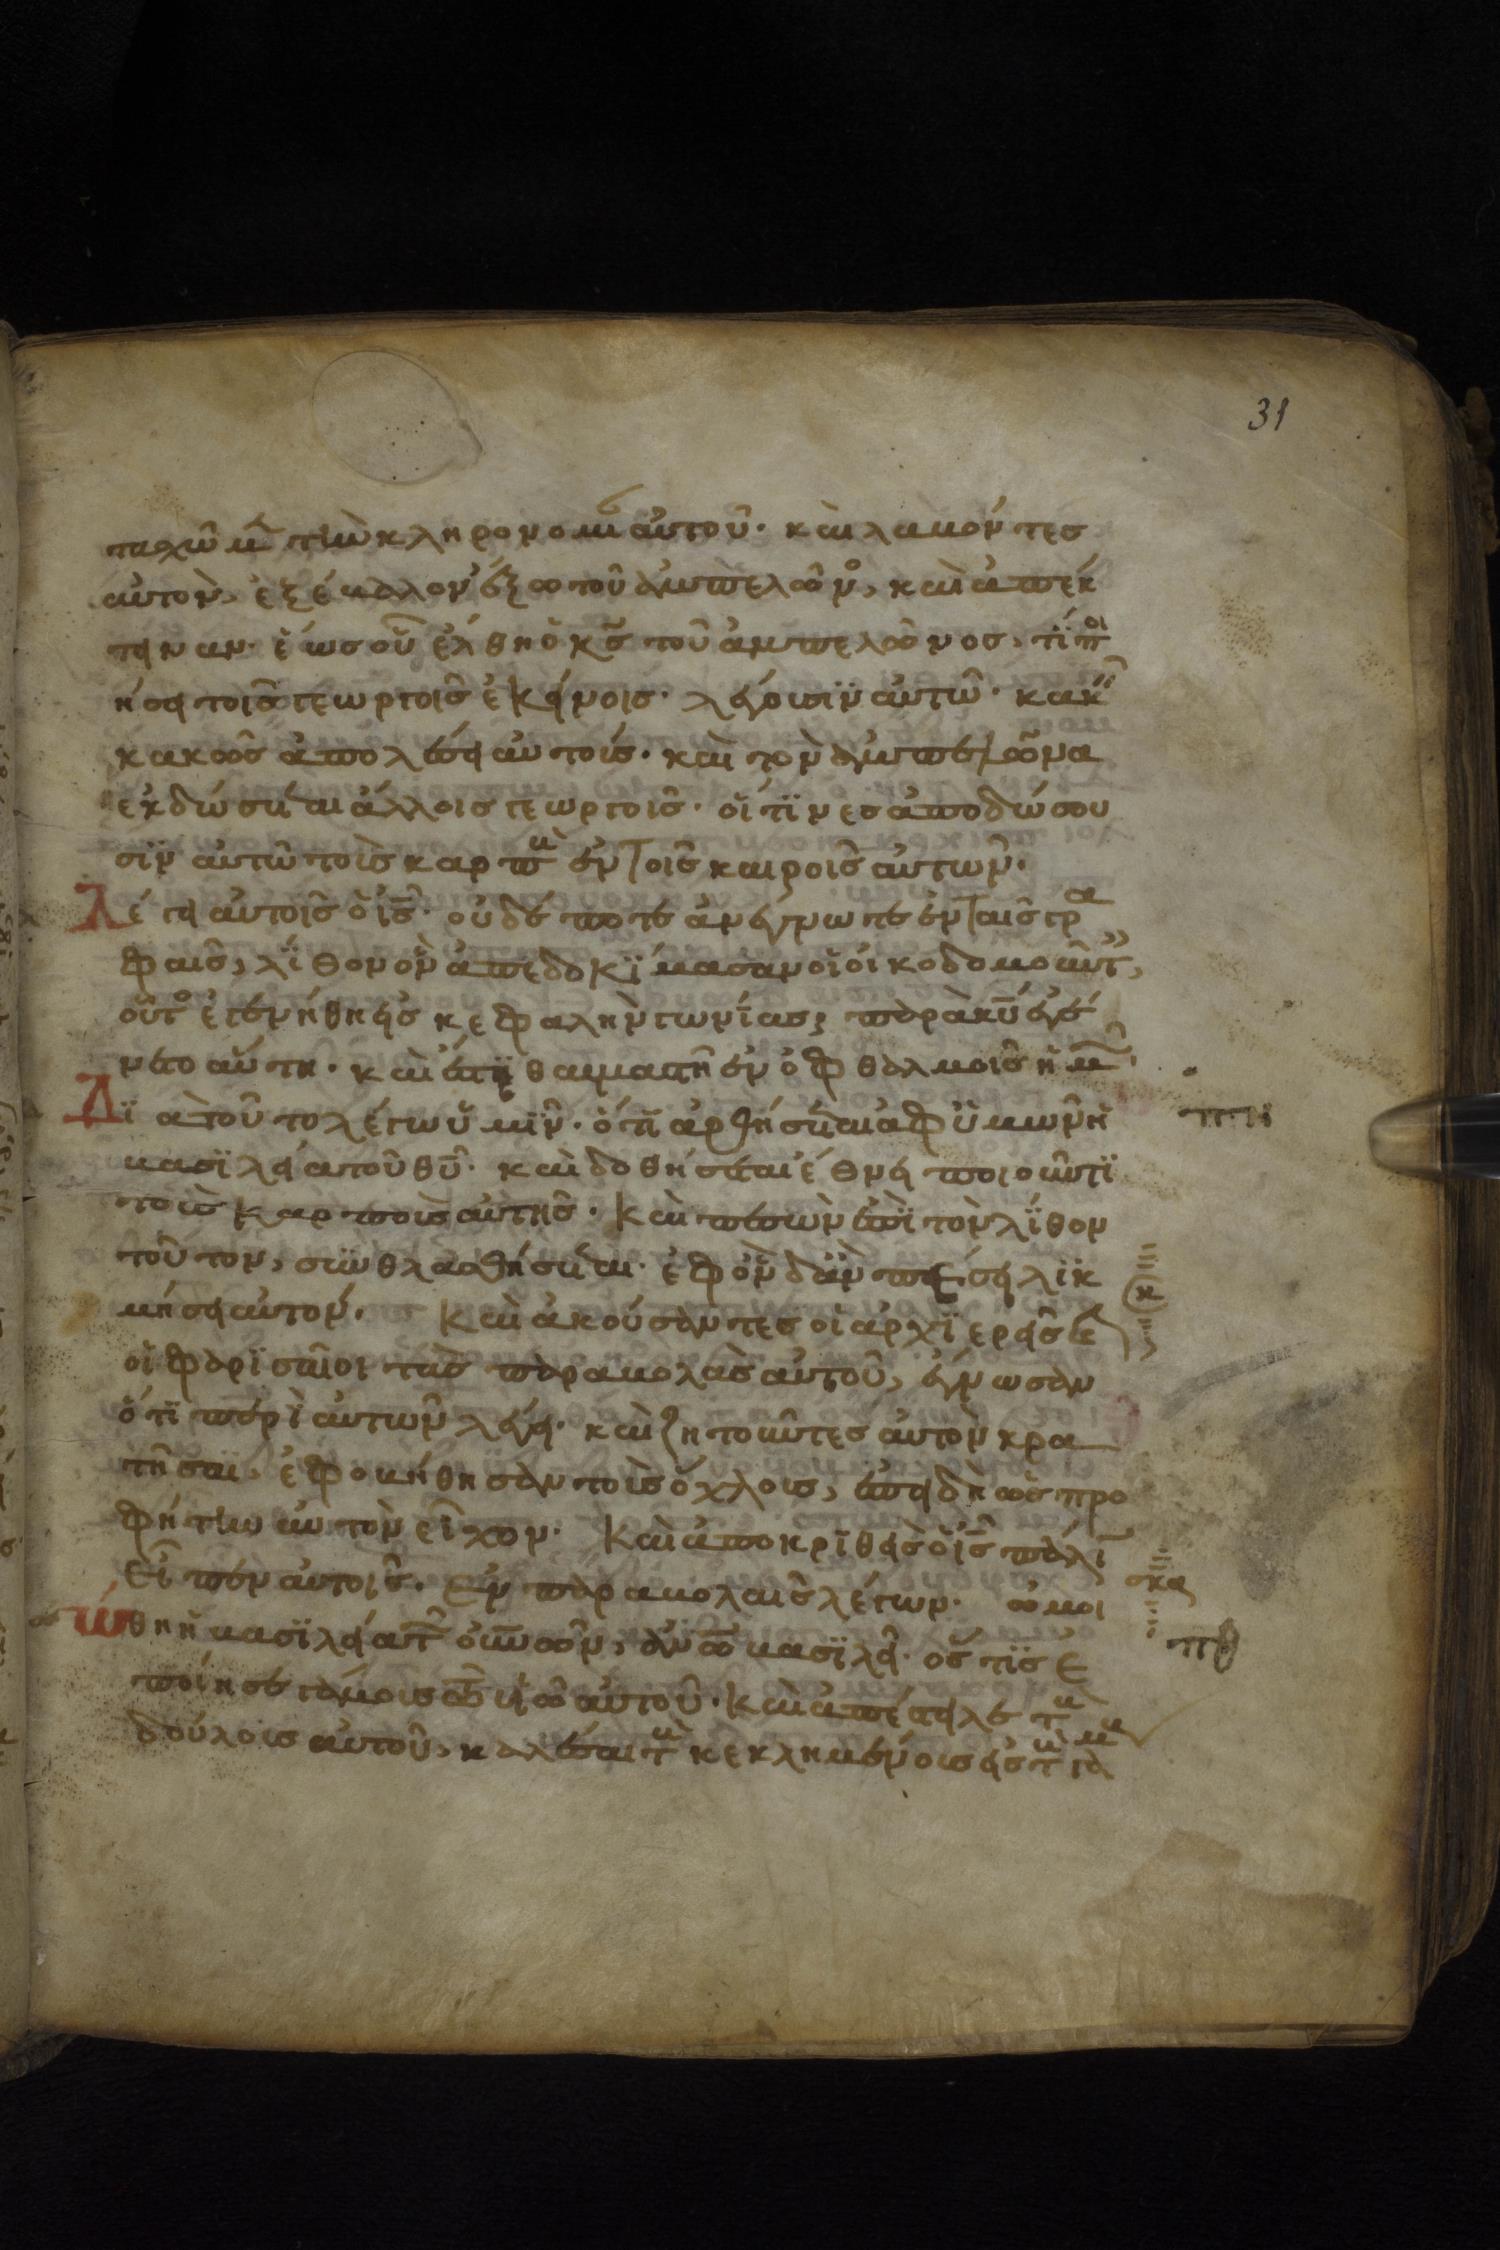 τασχῶμ τὴν κληρονομί αὐτοῦ· καὶ λαβόντες
αὐτὸν, ἐξέβαλον ἔξω τοῦ ἀμπελῶνο, καὶ ἀπέκ
τειναν· ἕως οὗ ἔλθη ὁ κς τοῦ ἀμπελῶνος, τί ποι
ήσει τοῖς γεωργοῖς ἐκείνοις· λέγουσϊν αὐτῶ· κακ
κακῶς ἀπολέσει αὐτούς· καὶ τὸν ἀμπελῶνα
ἐκδώσεται ἄλλοις γεωργοῖς· οἵτϊνες ἀποδώσου
σϊν αὐτῶ τοὺς καρπ ἐν τοῖς καιροῖς αὐτῶν·
Λέγει αὐτοῖς ὁ ις· οὐδέποτε ἀνέγνωτε ἐν ταῖς γρα
φαῖς, λίθον ὃν ἀπεδοκίμασαν οἱ οἰκοδομοῦντ,
οὗτο ἐγενήθη εἰς κεφαλὴν γωνίας, παρὰ κυ ἐγέ
νετο αὕτη· καὶ ἔστϊ θαυμαστὴ ἐν ὀφθαλμοῖς ἡμ·
Δϊὰ τοῦτο λέγω ὑμῖν· ὅτι ἀρθήσεται ἀφ ὑμῶν ἡ
βασϊλεία τοῦ θυ· καὶ δοθήσεται ἔθνει ποιοῦντϊ
τοὺς καρποὺς αὐτῆς· Καὶ πεσὼν ἐπὶ τὸν λίθον
τοῦτον, συνθλασθήσεται· ἐφ ὃν δἂν πέσει λϊκ
μήσει αὐτόν· Καὶ ἀκούσαντες οἱ ἀρχϊερεῖς κ
οἱ φαρϊσαῖοι τὰς παραβολὰς αὐτοῦ, ἔγνωσαν
ὅτϊ περὶ αὐτῶν λέγει· καὶ ζητοῦντες αὐτὸν κρα
τῆσαι, ἐφοβήθησαν τοὺς ὄχλους, ἐπειδὴ ὡς προ
φήτην αὐτὸν εἶχον· Καὶ ἀποκρϊθεὶς ὁ ις πάλι
εἶπεν αὐτοῖς· ἐν παραβολαῖς λέγων· ὡμοι
ώθη ἡ βασϊλεία τ ουνων, ανω βασϊλεῖ· ὅς τϊς ἐ
ποίησε γάμους τῶ υἱῶ αὐτοῦ· Καὶ ἀπέστειλε τ
δούλους αὐτοῦ, καλέσαι τ κεκλημένους εἰς τ γά
31
πη
κ
σκα
πθ